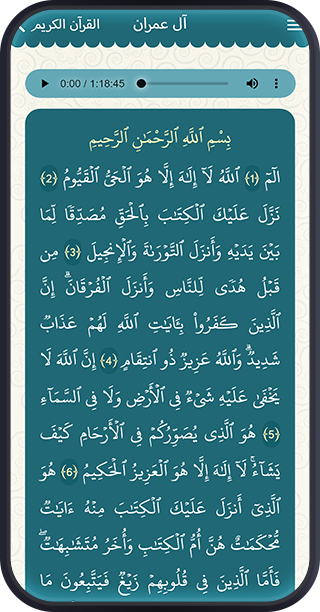 القرآن الكريم آل عمران
0:00 / 1:18:45
بِسْمِ ٱللَّهِ ٱلرَّحْمَٰنِ ٱلرَّحِيمِ
الٓمٓ ﴿1﴾ ٱللَّهُ لَآ إِلَٰهَ إِلَّا هُوَ ٱلْحَىُّ ٱلْقَيُّومُ ﴿2﴾
نَزَّلَ عَلَيْكَ ٱلْكِتَٰبَ بِٱلْحَقِّ مُصَدِّقًا لِّمَا
بَيْنَ يَدَيْهِ وَأَنزَلَ ٱلتَّوْرَىٰةَ وَٱلْإِنجِيلَ ﴿3﴾ مِن
قَبْلُ هُدًى لِّلنَّاسِ وَأَنزَلَ ٱلْفُرْقَانَ ۗ إِنَّ
ٱلَّذِينَ كَفَرُوا۟ بِـَٔايَٰتِ ٱللَّهِ لَهُمْ عَذَابٌ
شَدِيدٌ ۗ وَٱللَّهُ عَزِيزٌ ذُو ٱنتِقَامٍ ﴿4﴾ إِنَّ ٱللَّهَ لَا
يَخْفَىٰ عَلَيْهِ شَىْءٌ فِى ٱلْأَرْضِ وَلَا فِى ٱلسَّمَآءِ
﴿5﴾ هُوَ ٱلَّذِى يُصَوِّرُكُمْ فِى ٱلْأَرْحَامِ كَيْفَ
يَشَآءُ ۚ لَآ إِلَٰهَ إِلَّا هُوَ ٱلْعَزِيزُ ٱلْحَكِيمُ ﴿6﴾ هُوَ
ٱلَّذِىٓ أَنزَلَ عَلَيْكَ ٱلْكِتَٰبَ مِنْهُ ءَايَٰتٌ
مُّحْكَمَٰتٌ هُنَّ أُمُّ ٱلْكِتَٰبِ وَأُخَرُ مُتَشَٰبِهَٰتٌ ۖ
فَأَمَّا ٱلَّذِينَ فِى قُلُوبِهِمْ زَيْغٌ فَيَتَّبِعُونَ مَا